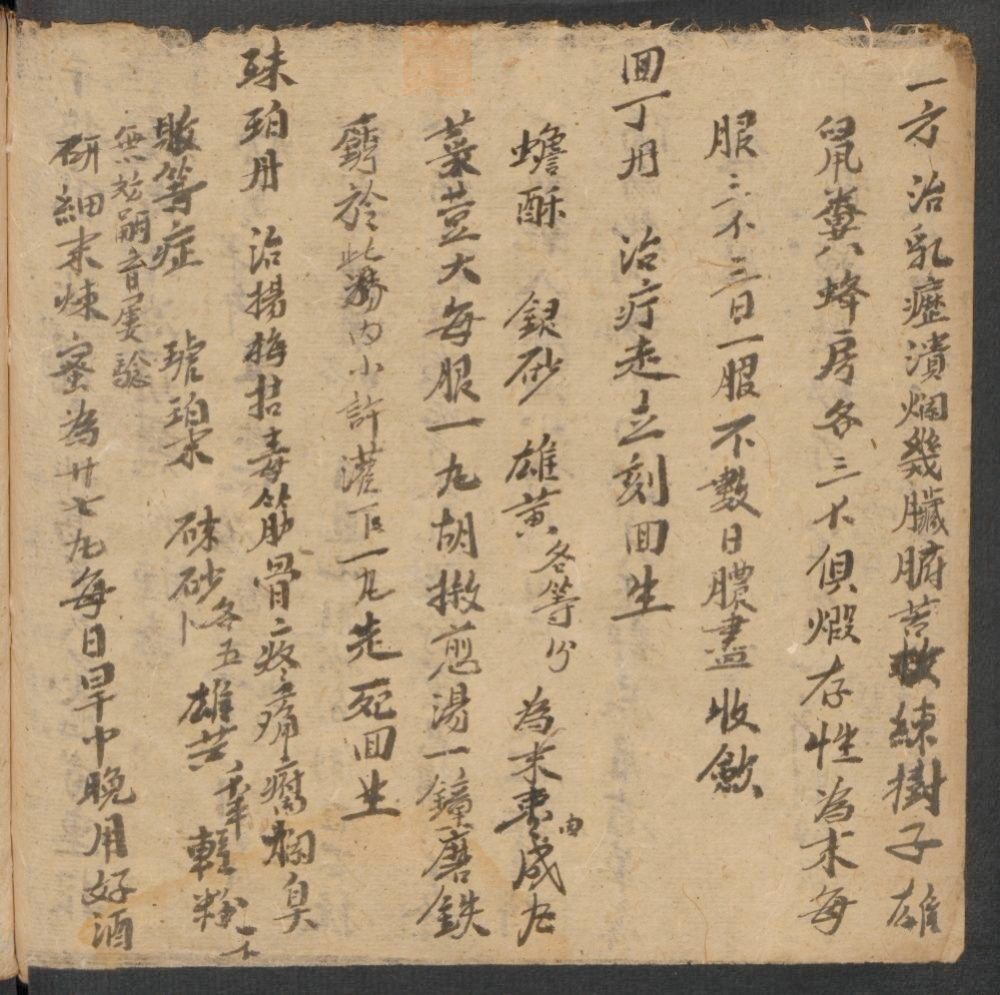 一方治乳癧潰爛幾臟腑苦練樹子雄
鼠糞八蜂房各三不俱煅存性為末每
服三不三日一服不數日膿盡收斂
回丁丹 治疔走立刻回生
蟾酥 銀砂 雄黃各等分 為末 成丸
菉荳大每服一丸胡椒煎湯一鐘磨鉄
銹於此湯內小許灌下一丸走死回生
珠珀丹 治揚梅 毒筋骨疼痛腐爛臭
敗等症 琥珀末 硃砂各五卜 雄黃 輕粉一不
無妨嗣育屢驗
研細末煉蜜為廿七丸每日早中晚用好酒